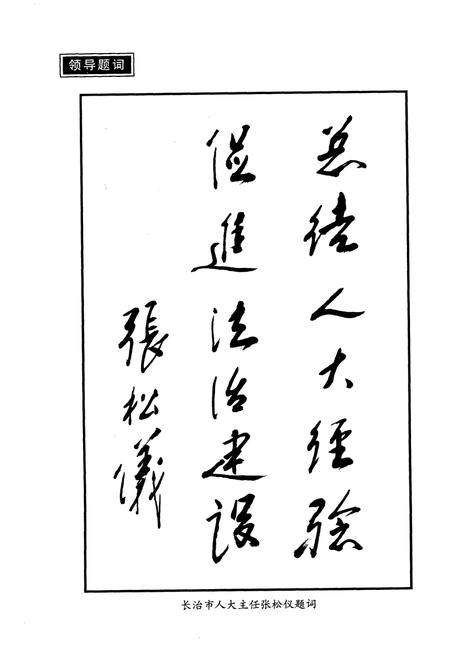 领导题词
总结人大经验
促進法治建设
張松儀
长治市人大主任张松仪题词